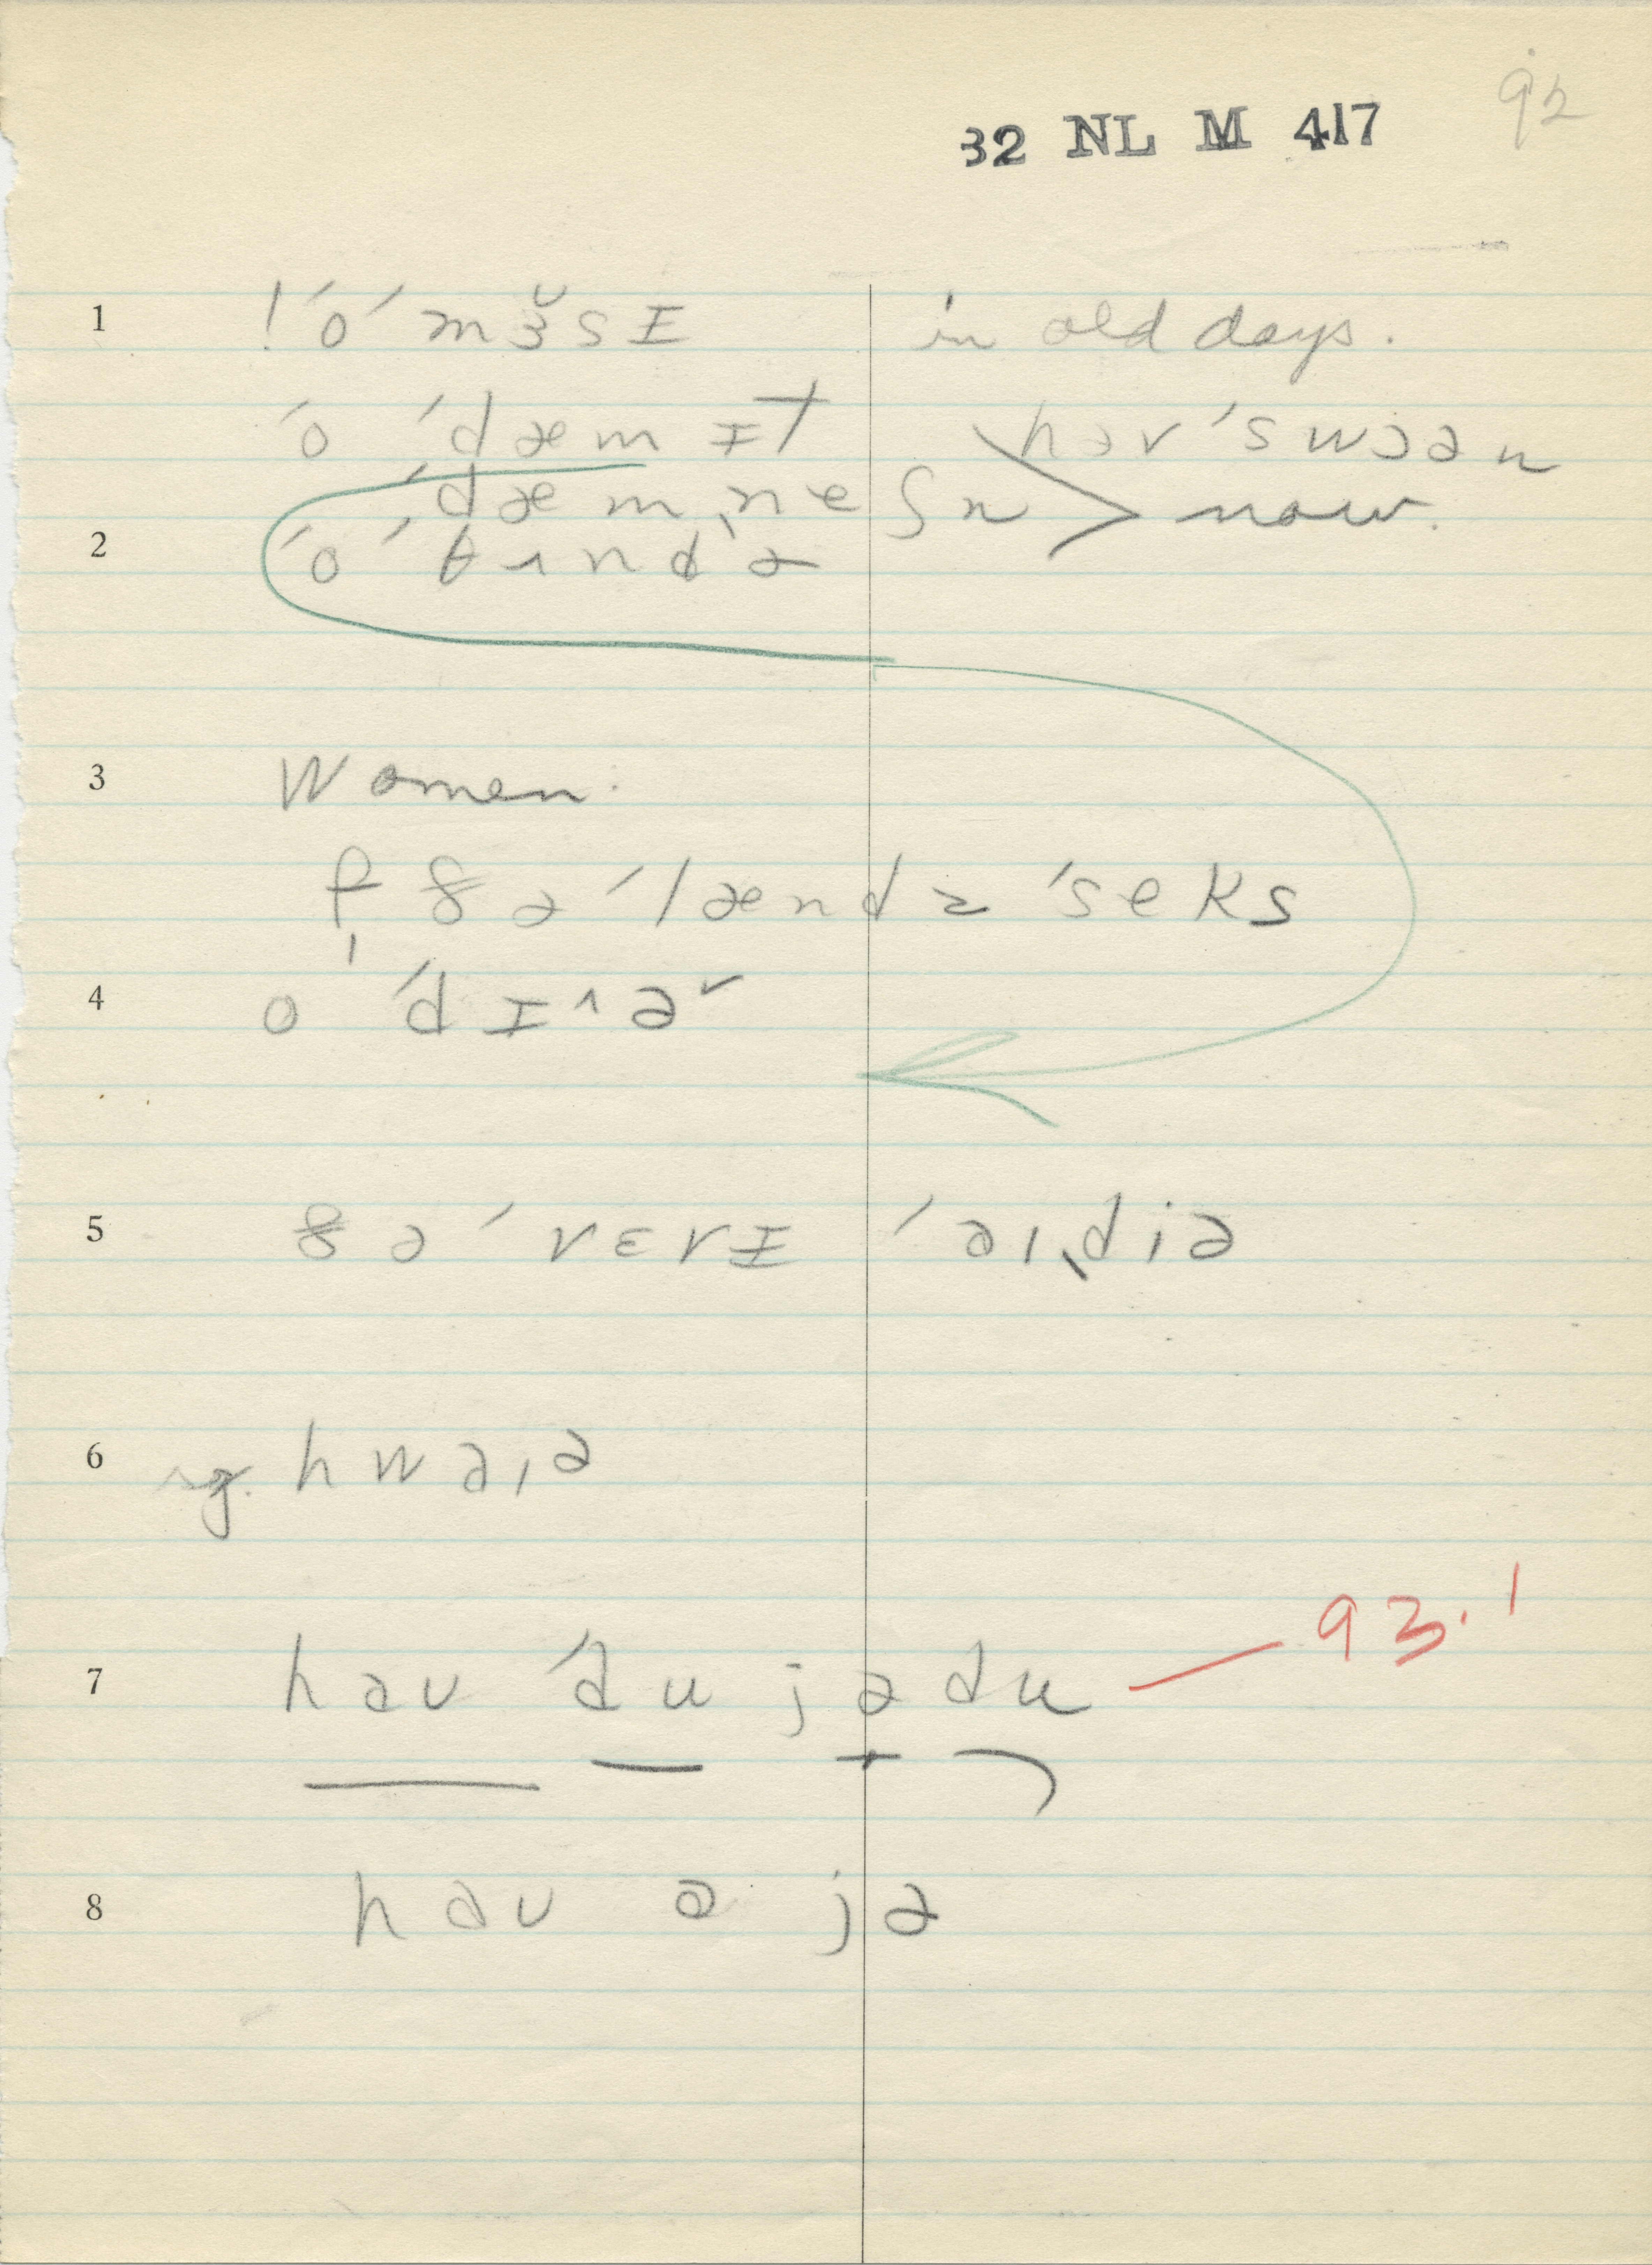 92
32 NL M 417
1 ! ˊoˊ mɜ̆sɪ in old days.
ˊo ˊdæmɪt hərˊswɔən
ˊdæmˌneʃn > now.
2 ˊo ˊθʌndɚ
3 Women.
f ðəˊlændz ˊseks
4 o ˊdɪ^ɚ
5 ðəˊvɛrɪ ˊaɪˌdiə
6 ng. hwaɪə
7 haʊ ˊdu jədu — 93.1
8 haʊ ə jə